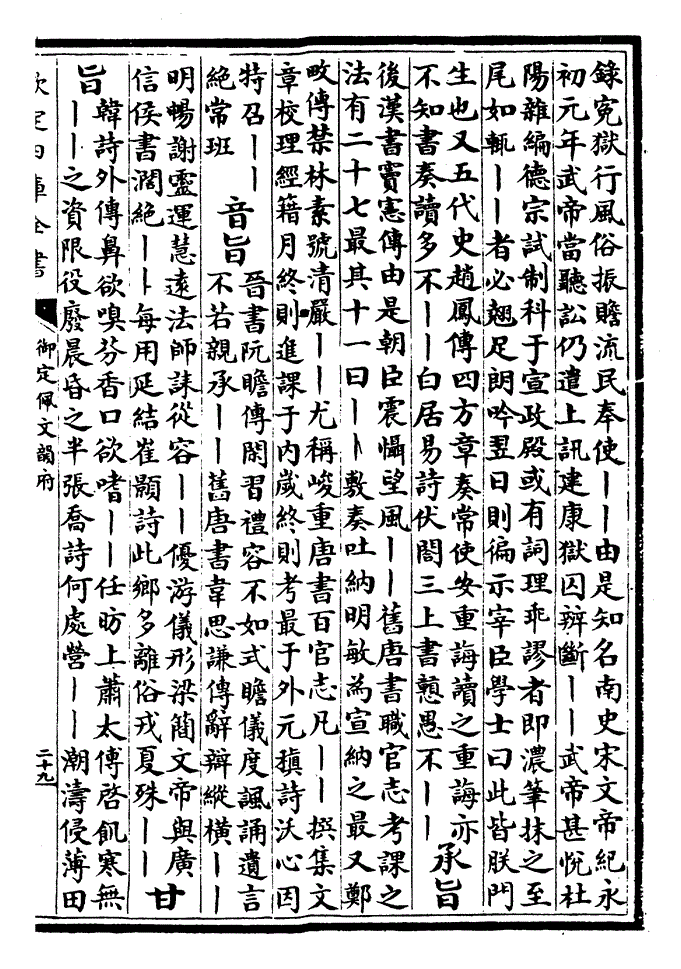 錄寃獄行風俗振贍流民奉使｜｜由是知名南史宋文帝紀永
初元年武帝當聽訟仍遣上訊建康獄囚辨斷｜｜武帝甚悅杜
陽雜編德宗試制科于宣政殿或有詞理乖謬者即濃筆抹之至
尾如輒｜｜者必翹足朗吟翌日則徧示宰臣學士曰此皆朕門
生也又五代史趙鳳傳四方章奏常使安重誨讀之重誨亦
不知書奏讀多不｜｜白居易詩伏閤三上書戅愚不｜｜
承旨
後漢書竇憲傳由是朝臣震懾望風｜｜舊唐書職官志考課之
法有二十七最其十一曰｜｜敷奏吐納明敏為宣納之最又鄭
畋傳禁林素號清嚴｜｜尤稱峻重唐書百官志凡｜｜撰集文
章校理經籍月終則進課于內歲終則考最于外元稹詩沃心因
特召｜｜
絶常班
音旨
晉書阮瞻傳閑習禮容不如式瞻儀度諷誦遺言
不若親承｜｜舊唐書韋思謙傳辭辨縱橫｜｜
明暢謝靈運慧遠法師誄從容｜｜優游儀形梁簡文帝與廣
信侯書濶絶｜｜每用延結崔顥詩此鄉多離俗戎夏殊｜｜
甘
旨
韓詩外傳鼻欲嗅芬香口欲嗜｜｜任昉上蕭太傅啓飢寒無
｜｜之資限役廢晨昏之半張喬詩何處營｜｜潮濤侵薄田
欽定四庫全書
御定佩文韻府
二十九